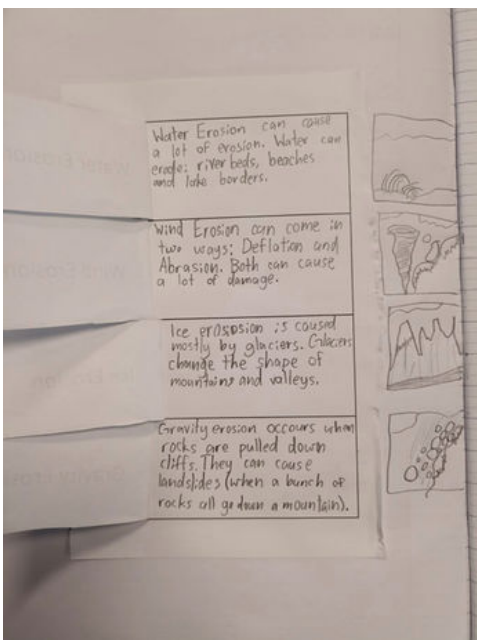 Water Erosion can cause
a lot of erosion. Water can
erode: river beds, beaches
and lake borders.
Wind Erosion can come in
two ways: Deflation and
Abrasion. Both can cause
a lot of damage.
Ice erososion is caused
mostly by glaciers. Glaciers
change the shape of
mountains and valleys.
Gravity erosion occours when
rocks are pulled down
cliffs. They can cause
landslides (when a bunch of
rocks all go down a mountain).